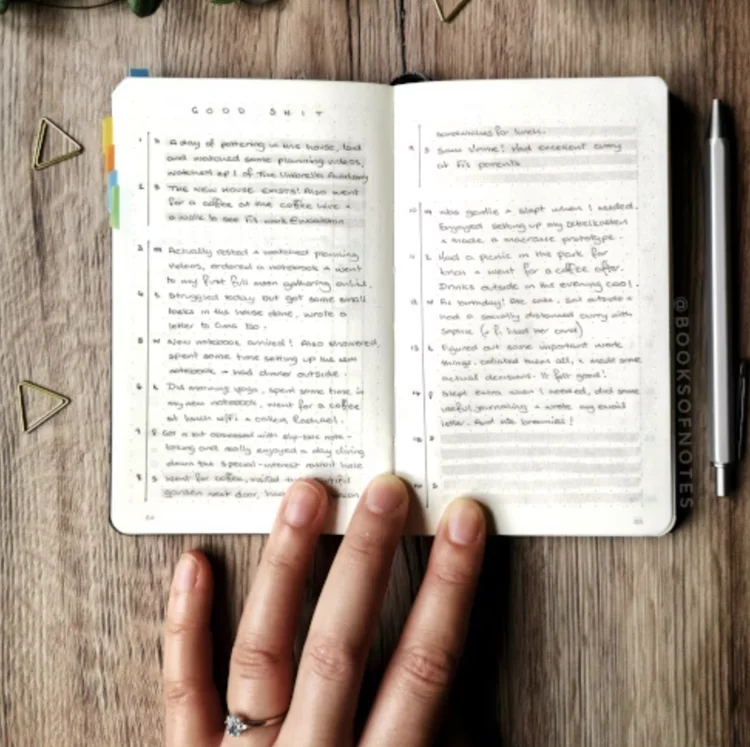 GOOD SHIT
1 S A day of pottering in the house, laid
and watched some planning videos,
watched ep 1 of The Umbrella Academy
2 S THE NEW HOUSE EXISTS! Also went
for a coffee at the coffee +
a walk to see
3 M Actually rested + watched planning
videos, ordered a notebook + went
to my first full moon gathering online.
4 t Struggled today but got some small
tasks in the house done, wrote a
letter to too.
5 W New notebook arrived! Also showered,
spent some time setting up the new
notebook + had dinner outside.
6 t Did morning yoga, spent some time in
my new notebook, went for a coffee
at lunch + called Rachael.
7 f Got a bit obsessed with slip-box note-
taking and really enjoyed a day diving
down the special-interest rabbit hole
8 S Went for coffee, visited the beautiful
garden next door, had
64
sandwiches for lunch.
9 S Same home! Had excellent curry
at parents
10 M Was gentle + slept when I needed.
Enjoyed setting up my
+ made a macramé prototype.
11 t Had a picnic in the park for
lunch + went for a coffee after.
Drinks outside in the evening cool.
12 W birthday! Ate cake, sat outside +
had a socially distanced curry with
Sophie (+ f. had her own)
13 t Figured out some important work
things, collated them all, + made some
actual decisions. It felt good!
14 f Slept extra when I needed, did some
useful journaling + wrote my email
letter. And ate brownies!
15 S
16 S
@BOOKSOFNOTES